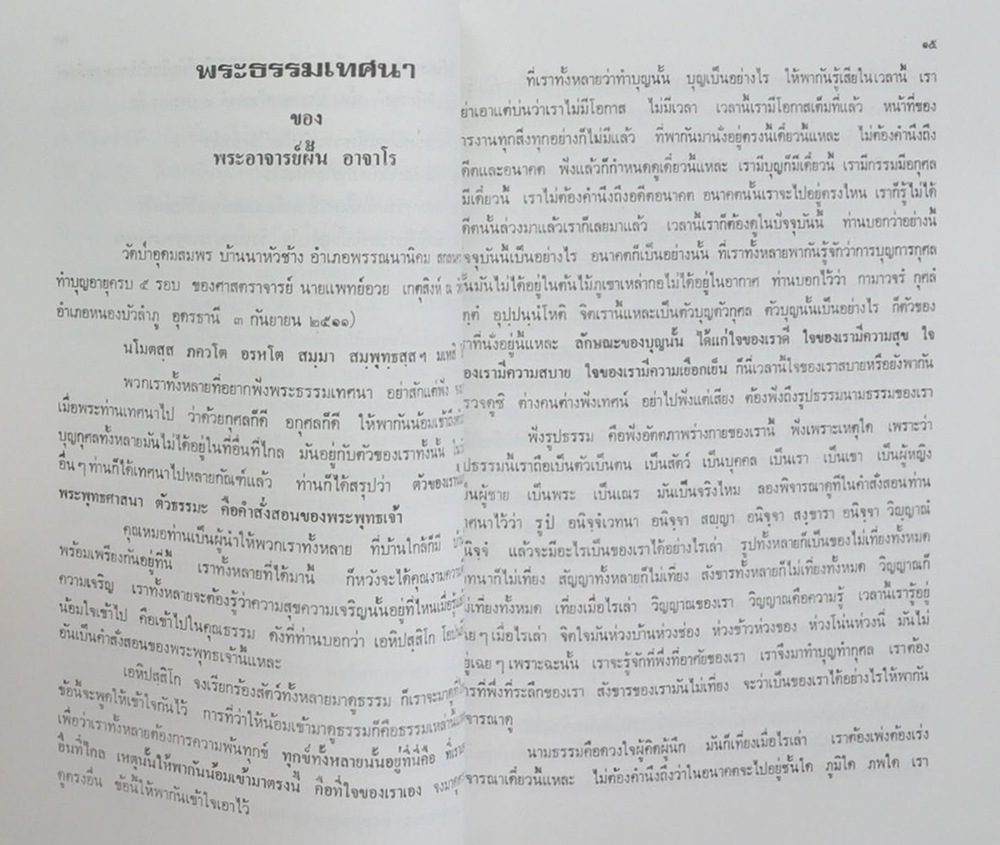 พระธรรมเทศนา
ของ
พระอาจารย์ฝั้น อาจาโร
วัดป่าอุดมสมพร บ้านนาหัวช้าง อำเภอพรรณนานิคม สกลนคร
ทำบุญอายุครบ ๕ รอบ ของศาสตราจารย์ นายแพทย์อวย เกตุสิงห์ ณ
อำเภอหนองบัวลำภู อุดรธานี ๓ กันยายน ๒๕๑๑)
นโมตสฺส ภควโต อรหโต สมฺมา สมฺพุทฺธสฺสฯ
พวกเราทั้งหลายที่อยากฟังพระธรรมเทศนา อย่าสักแต่ฟัง
เมื่อพระท่านเทศนาไป ว่าด้วยกุศลก็ดี อกุศลก็ดี ให้พากันน้อมเข้าถึงตัว
บุญกุศลทั้งหลายมันไม่ได้อยู่ในที่อื่นที่ไกล มันอยู่กับตัวของเราทั้งนั้น
อื่นๆ ท่านก็ได้เทศนาไปหลายกัณฑ์แล้ว ท่านก็ได้สรุปว่า ตัวของเรา
พระพุทธศาสนา ตัวธรรมะ คือคำสั่งสอนของพระพุทธเจ้า
คุณหมอท่านเป็นผู้นำให้พวกเราทั้งหลาย ที่บ้านใกล้ก็มี
พร้อมเพรียงกันอยู่ที่นี้ เราทั้งหลายที่ได้มานี้ ก็หวังจะได้คุณงามความดี
ความเจริญ เราทั้งหลายจะต้องรู้ว่าความสุขความเจริญนั้นอยู่ที่ไหนเมื่อรู้
น้อมใจเข้าไป คือเข้าไปในคุณธรรม ดังที่ท่านบอกว่า เอหิปสฺสิโก
อันเป็นคำสั่งสอนของพระพุทธเจ้านี้แหละ
เอหิปสฺสิโก จงเรียกร้องสัตว์ทั้งหลายมาดูธรรม ก็เราจะมาดู
ข้อนี้จะพูดให้เข้าใจกันไว้ การที่ว่าให้น้อมเข้ามาดูธรรมก็คือธรรมเหล่านี้
เพื่อว่าเราทั้งหลายต้องการความพ้นทุกข์ ทุกข์ทั้งหลายนั้นอยู่ที่นี่คือ ที่เรา
อื่นที่ไกล เหตุนั้นให้พากันน้อมเข้ามาตรงนี้ คือที่ใจของเราเอง จงมาดู
ดูตรงอื่น ข้อนี้ให้พากันเข้าใจเอาไว้
๑๕
ที่เราทั้งหลายว่าทำบุญนั้น บุญเป็นอย่างไร ให้พากันรู้เสียในเวลานี้ เรา
ย่าเอาแต่บ่นว่าเราไม่มีโอกาส ไม่มีเวลา เวลานี้เรามีโอกาสเต็มที่แล้ว หน้าที่ของ
ารงานทุกสิ่งทุกอย่างก็ไม่มีแล้ว ที่พากันมานั่งอยู่ตรงนี้เดี๋ยวนี้แหละ ไม่ต้องคำนึงถึง
ดีตและอนาคต ฟังแล้วก็กำหนดดูเดี๋ยวนี้แหละ เรามีบุญก็มีเดี๋ยวนี้ เรามีกรรมมีอกุศล
มีเดี๋ยวนี้ เราไม่ต้องคำนึงถึงอดีตอนาคต อนาคตนั้นเราจะไปอยู่ตรงไหน เราก็รู้ไม่ได้
ดีตนั้นล่วงมาแล้วเราก็เลยมาแล้ว เวลานี้เราก็ต้องดูในปัจจุบันนี้ ท่านบอกว่าอย่างนี้
จจุบันนี้เป็นอย่างไร อนาคตก็เป็นอย่างนั้น ที่เราทั้งหลายพากันรู้จักว่าการบุญการกุศล
นั้นมันไม่ได้อยู่ในต้นไม้ภูเขาเหล่ากอไม่ได้อยู่ในอากาศ ท่านบอกไว้ว่า กามาวจรํ กุสลํ
ตฺตํ อุปฺปนฺนํโหติ จิตเรานี้แหละเป็นตัวบุญตัวกุศล ตัวบุญนั้นเป็นอย่างไร ก็ตัวของ
ราที่นั่งอยู่นี้แหละ ลักษณะของบุญนั้น ได้แก่ใจของเราดี ใจของเรามีความสุข ใจ
องเรามีความสบาย ใจของเรามีความเยือกเย็น ก็นี่เวลานี้ใจของเราสบายหรือยังพากัน
รวจดูซิ ต่างคนต่างฟังเทศน์ อย่าไปฟังแต่เสียง ต้องฟังถึงรูปธรรมนามธรรมของเรา
ฟังรูปธรรม คือฟังอัตตภาพร่างกายของเรานี้ ฟังเพราะเหตุใด เพราะว่า
ูปธรรมนี้เราถือเป็นตัวเป็นตน เป็นสัตว์ เป็นบุคคล เป็นเรา เป็นเขา เป็นผู้หญิง
ป็นผู้ชาย เป็นพระ เป็นเณร มันเป็นจริงไหม ลองพิจารณาดูที่ในคำสั่งสอนท่าน
ทศนาไว้ว่า รูปํ อนิจฺจํเวทนา อนิจฺจา สญฺญา อนิจฺจา สงฺขารา อนิจฺจา วิญฺญาณํ
นิจฺจํ แล้วจะมีอะไรเป็นของเราได้อย่างไรเล่า รูปทั้งหลายก็เป็นของไม่เที่ยงทั้งหมด
วทนาก็ไม่เที่ยง สัญญาทั้งหลายก็ไม่เที่ยง สังขารทั้งหลายก็ไม่เที่ยงทั้งหมด วิญญาณก็
ม่เที่ยงทั้งหมด เที่ยงเมื่อไรเล่า วิญญาณของเรา วิญญาณคือความรู้ เวลานี้เรารู้อยู่
ฉยๆ เมื่อไรเล่า จิตใจมันห่วงบ้านห่วงช่อง ห่วงข้าวห่วงของ ห่วงโน่นห่วงนี่ มันไม่
ยู่เฉยๆ เพราะฉะนั้น เราจะรู้จักที่พึ่งที่อาศัยของเรา เราจึงมาทำบุญทำกุศล เราต้อง
การที่พึ่งที่ระลึกของเรา สังขารของเรามันไม่เที่ยง จะว่าเป็นของเราได้อย่างไรให้พากัน
จารณาดู
นามธรรมคือดวงใจผู้คิดผู้นึก มันก็เที่ยงเมื่อไรเล่า เราต้องเพ่งต้องเร่ง
จารณาเดี๋ยวนี้แหละ ไม่ต้องคำนึงถึงว่าในอนาคตจะไปอยู่ชั้นใด ภูมิใด ภพใด เรา